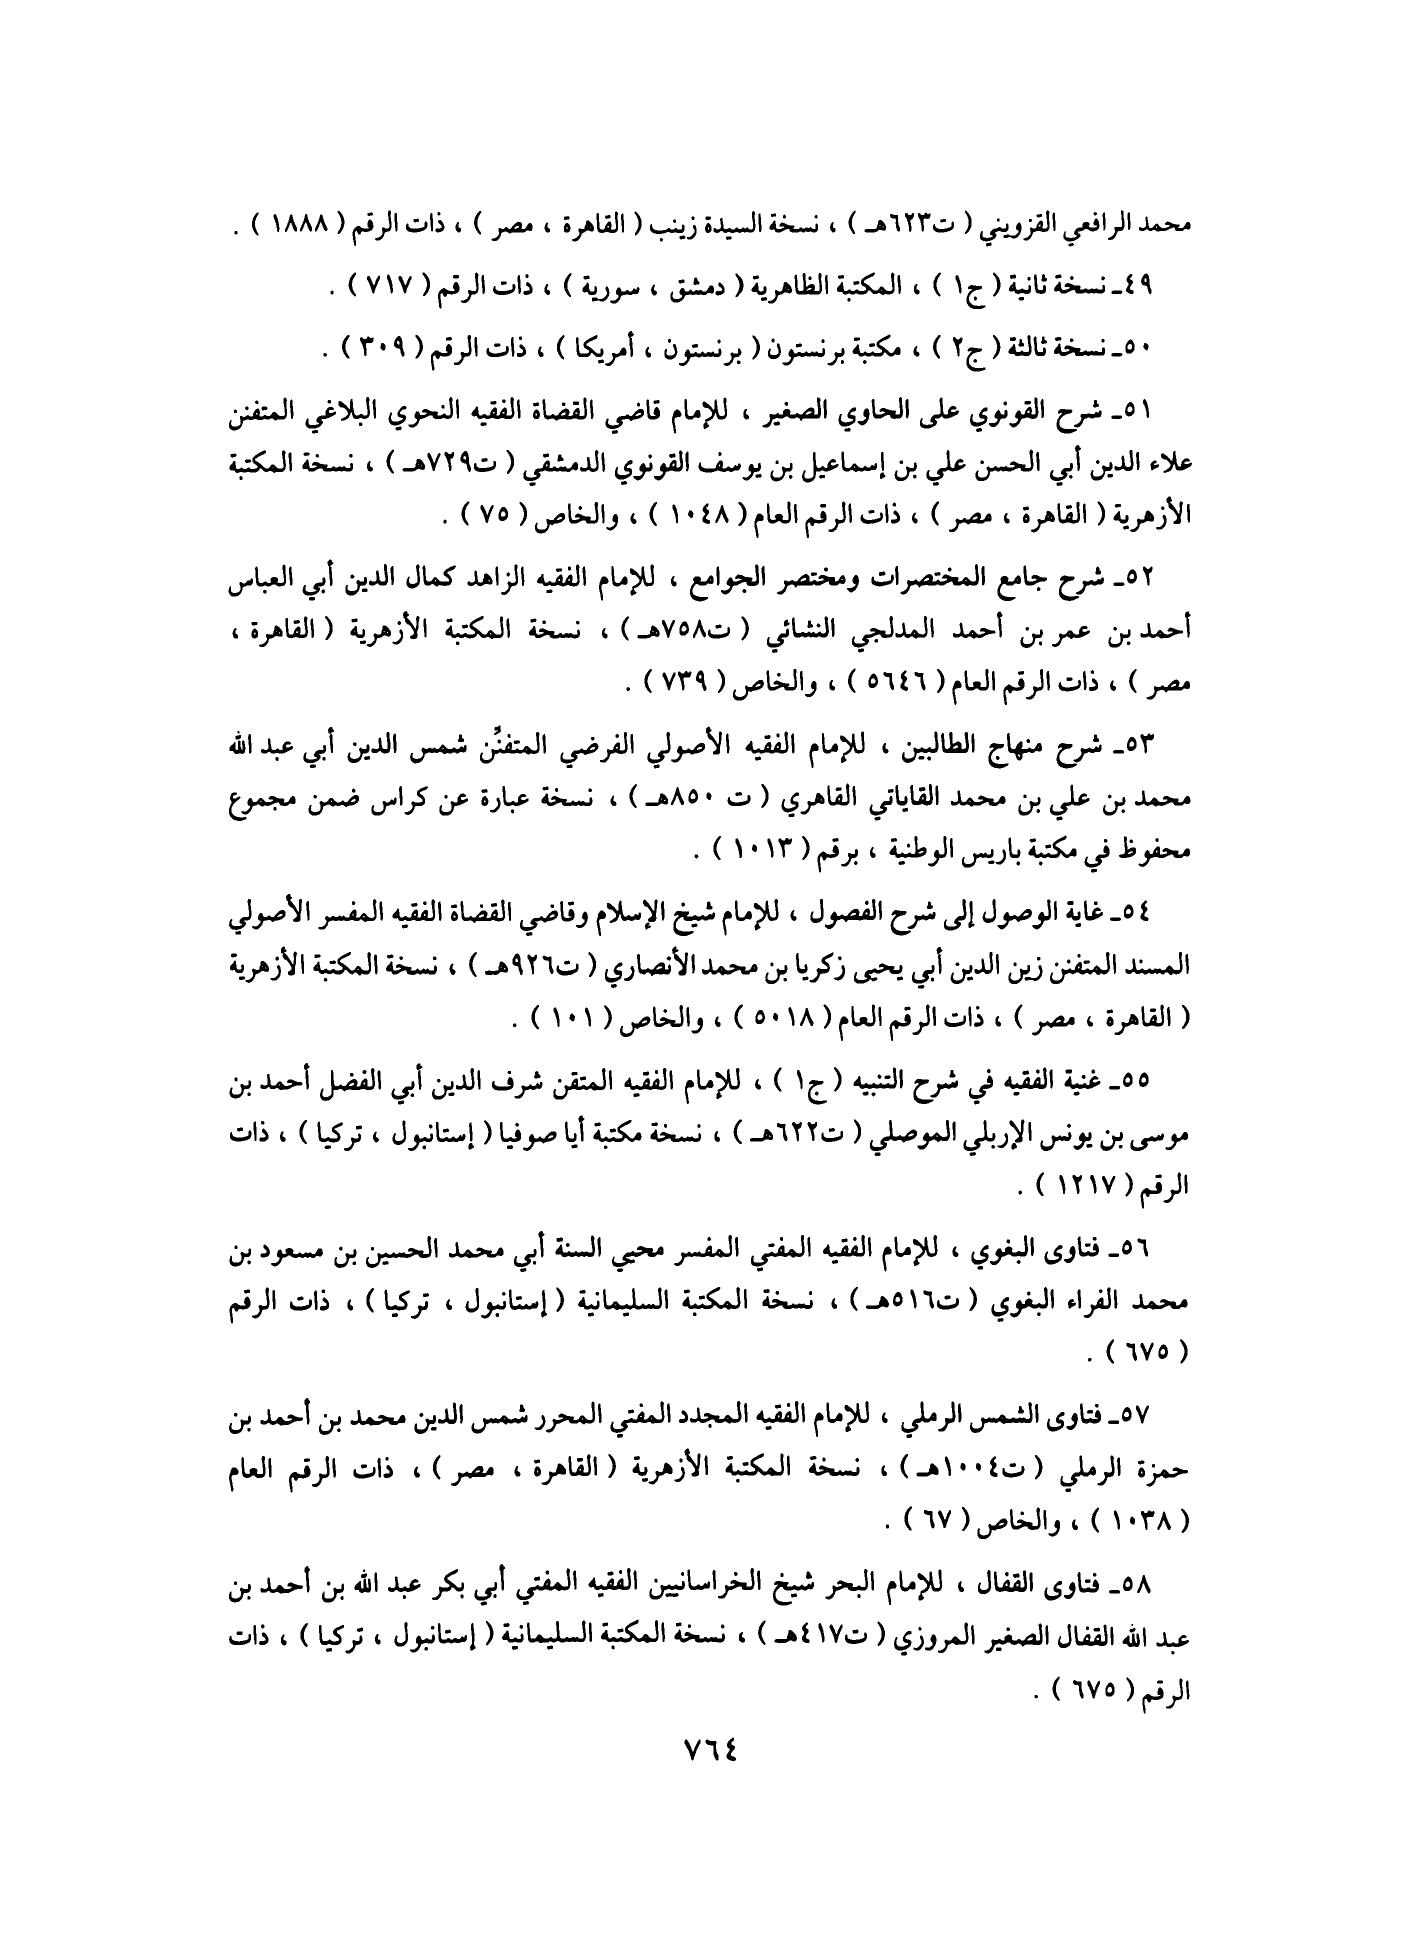 محمد الرافعي القزويني ( ت٦٢٣هـ ) ، نسخة السيدة زينب ( القاهرة ، مصر ) ، ذات الرقم ( ١٨٨٨ ) .
٤٩ـ نسخة ثانية ( ج١ ) ، المكتبة الظاهرية ( دمشق ، سورية ) ، ذات الرقم ( ٧١٧ ) .
٥٠ـ نسخة ثالثة ( ج٢ ) ، مكتبة برنستون ( برنستون ، أمريكا ) ، ذات الرقم ( ٣٠٩ ) .
٥١ـ شرح القونوي على الحاوي الصغير ، للإمام قاضي القضاة الفقيه النحوي البلاغي المتفنن
علاء الدين أبي الحسن علي بن إسماعيل بن يوسف القونوي الدمشقي ( ت٧٢٩هـ ) ، نسخة المكتبة
الأزهرية ( القاهرة ، مصر ) ، ذات الرقم العام ( ١٠٤٨ ) ، والخاص ( ٧٥ ) .
٥٢ـ شرح جامع المختصرات ومختصر الجوامع ، للإمام الفقيه الزاهد كمال الدين أبي العباس
أحمد بن عمر بن أحمد المدلجي النشائي ( ت٧٥٨هـ ) ، نسخة المكتبة الأزهرية ( القاهرة ،
مصر ) ، ذات الرقم العام ( ٥٦٤٦ ) ، والخاص ( ٧٣٩ ) .
٥٣ـ شرح منهاج الطالبين ، للإمام الفقيه الأصولي الفرضي المتفنِّن شمس الدين أبي عبد الله
محمد بن علي بن محمد القاياتي القاهري ( ت ٨٥٠هـ ) ، نسخة عبارة عن كراس ضمن مجموع
محفوظ في مكتبة باريس الوطنية ، برقم ( ١٠١٣ ) .
٥٤ـ غاية الوصول إلى شرح الفصول ، للإمام شيخ الإسلام وقاضي القضاة الفقيه المفسر الأصولي
المسند المتفنن زين الدين أبي يحيى زكريا بن محمد الأنصاري ( ت٩٢٦هـ ) ، نسخة المكتبة الأزهرية
( القاهرة ، مصر ) ، ذات الرقم العام ( ٥٠١٨ ) ، والخاص ( ١٠١ ) .
٥٥ـ غنية الفقيه في شرح التنبيه ( ج١ ) ، للإمام الفقيه المتقن شرف الدين أبي الفضل أحمد بن
موسى بن يونس الإربلي الموصلي ( ت٦٢٢هـ ) ، نسخة مكتبة أيا صوفيا ( إستانبول ، تركيا ) ، ذات
الرقم ( ١٢١٧ ) .
٥٦ـ فتاوى البغوي ، للإمام الفقيه المفتي المفسر محيي السنة أبي محمد الحسين بن مسعود بن
محمد الفراء البغوي ( ت٥١٦هـ ) ، نسخة المكتبة السليمانية ( إستانبول ، تركيا ) ، ذات الرقم
( ٦٧٥ ) .
٥٧ـ فتاوى الشمس الرملي ، للإمام الفقيه المجدد المفتي المحرر شمس الدين محمد بن أحمد بن
حمزة الرملي ( ت١٠٠٤هـ ) ، نسخة المكتبة الأزهرية ( القاهرة ، مصر ) ، ذات الرقم العام
( ١٠٣٨ ) ، والخاص ( ٦٧ ) .
٥٨ـ فتاوى القفال ، للإمام البحر شيخ الخراسانيين الفقيه المفتي أبي بكر عبد الله بن أحمد بن
عبد الله القفال الصغير المروزي ( ت٤١٧هـ ) ، نسخة المكتبة السليمانية ( إستانبول ، تركيا ) ، ذات
الرقم ( ٦٧٥ ) .
٧٦٤